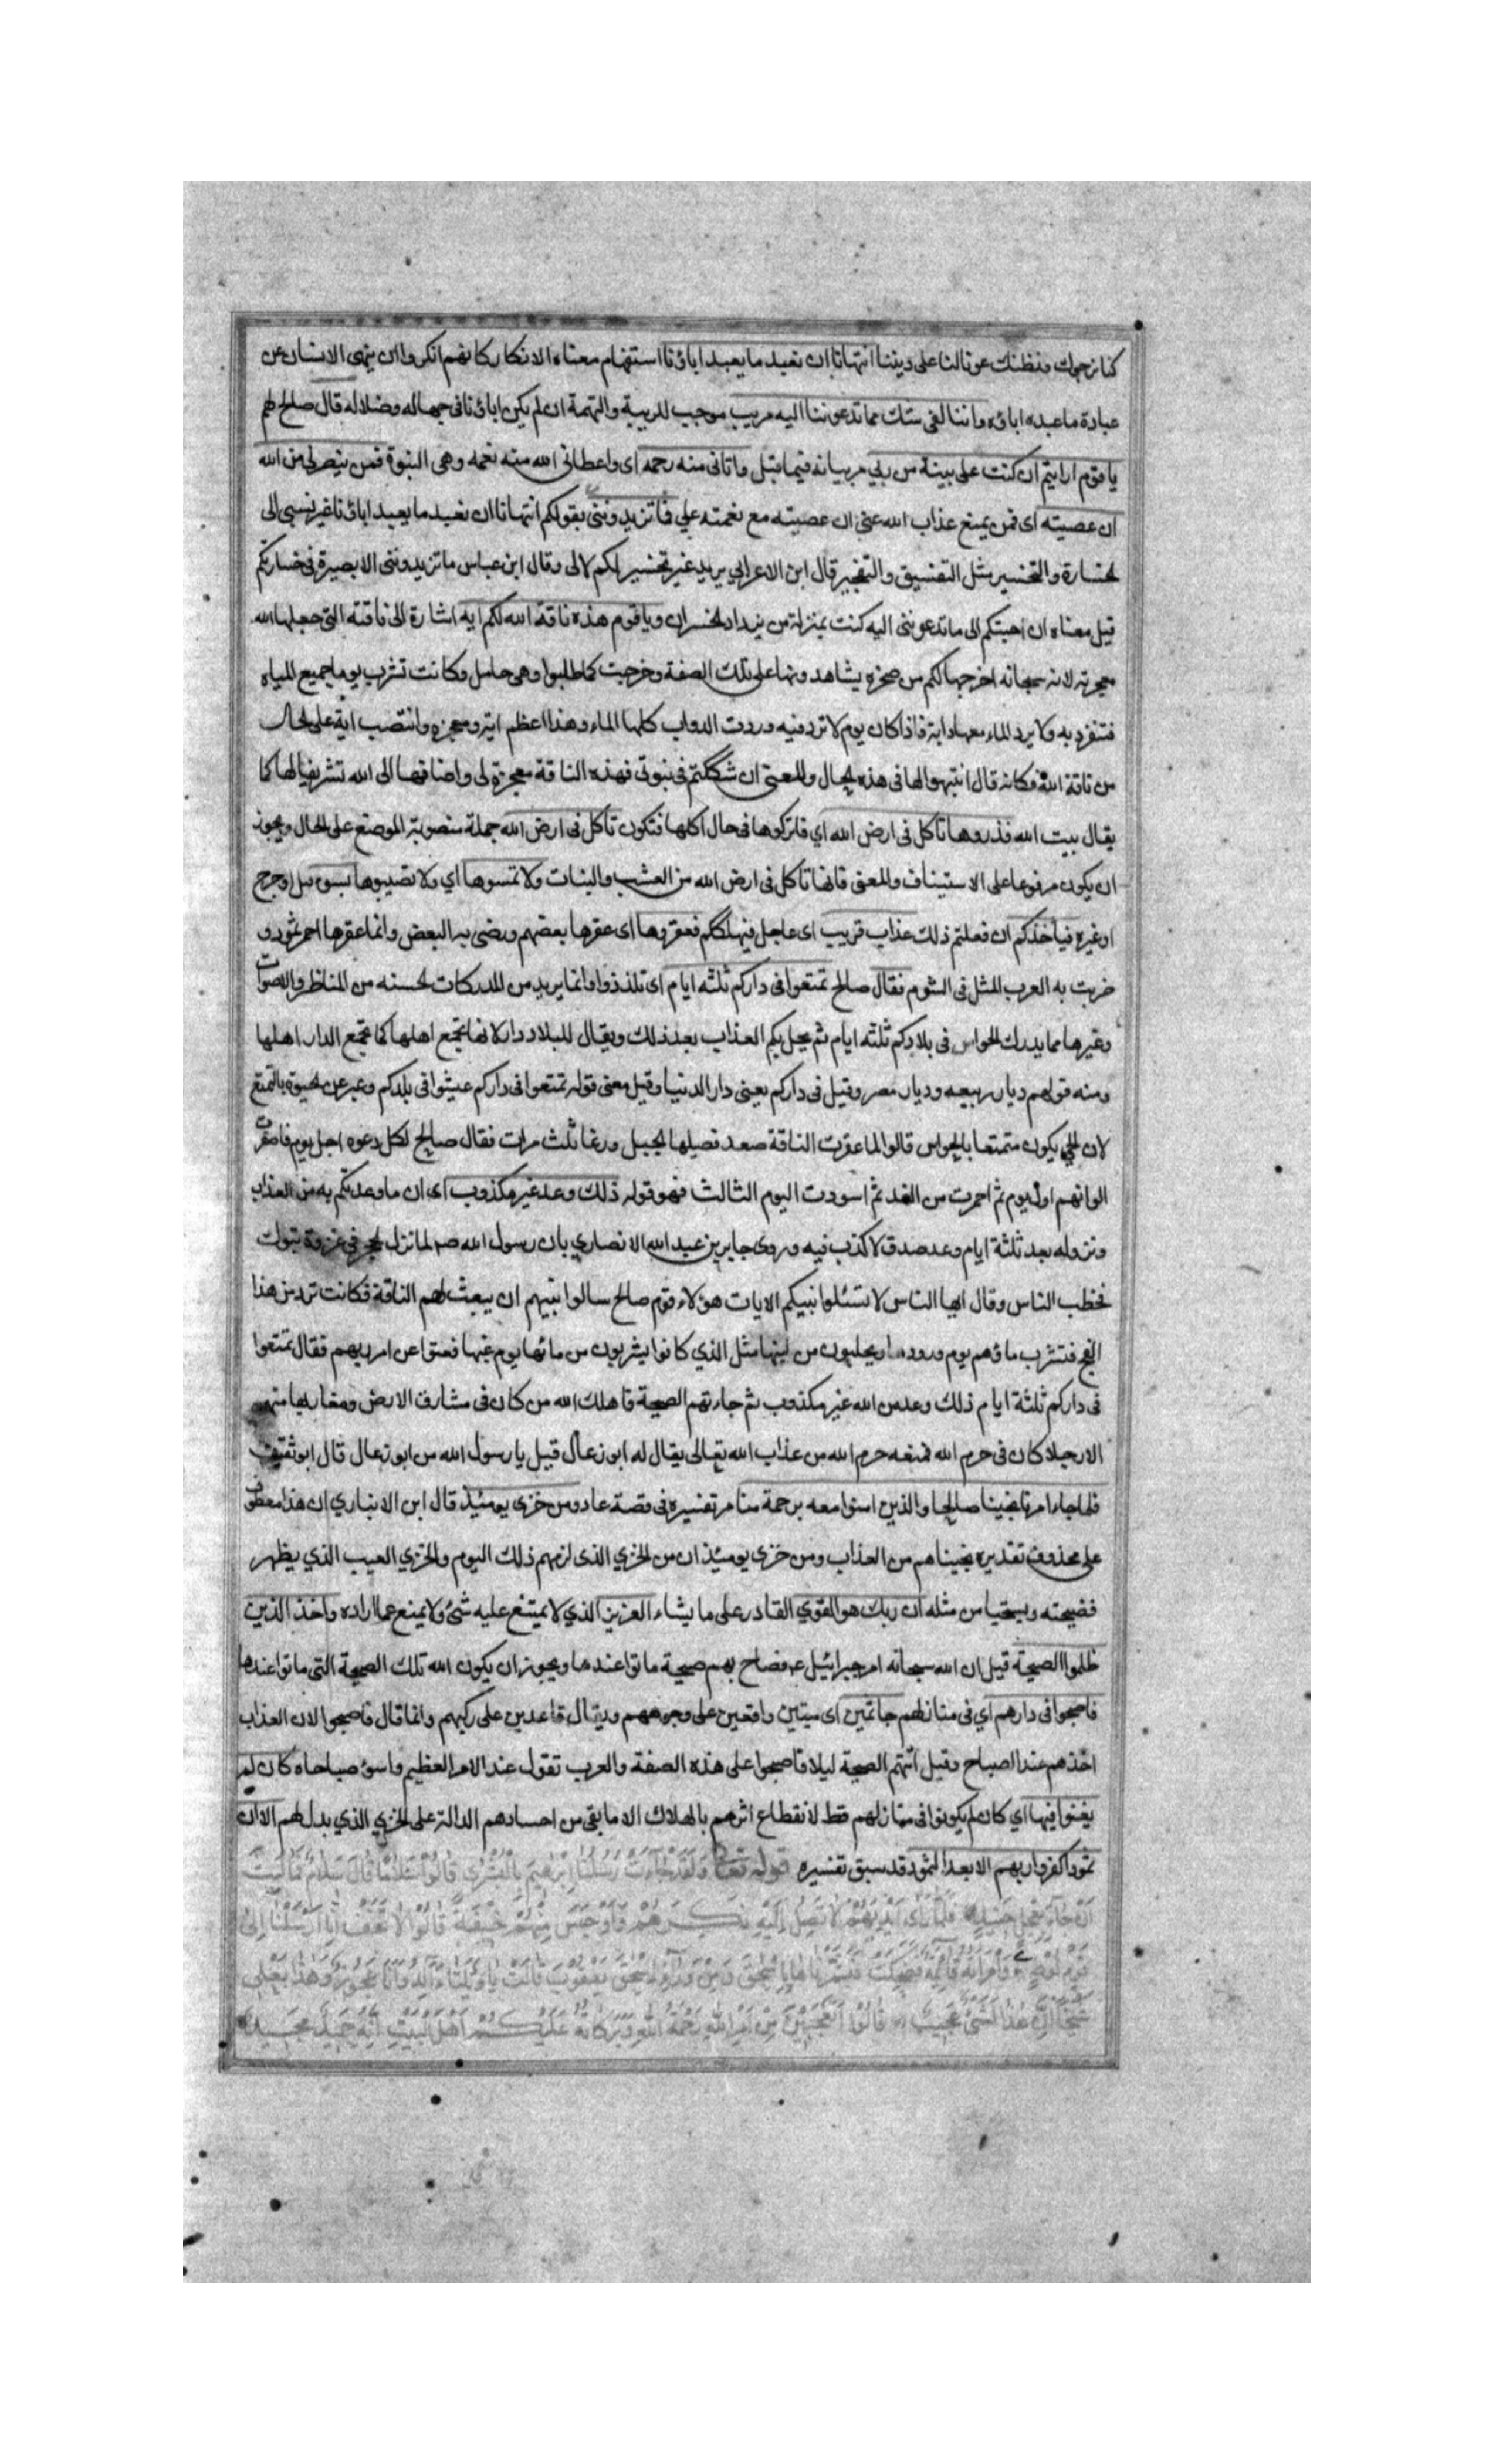 كنا نرجوك ونظنك عونا لنا على ديننا اتنهانا ان نعبد ما يعبد اباؤنا استفهام معناه الانكار كانهم انكروا ان ينهى الانسان عن
عبادة ما عبده اباؤه واننا لفي شك مما تدعوننا اليه مريب موجب للريبة والتهمة ان لم يكن اباؤنا في جهاله وضلاله قال صالح لهم
يا قوم ارايتم ان كنت على بينة من ربي مر بيانه فيما قبل واتاني منه رحمه اي واعطاني الله منه نعمه وهي النبوة فمن ينصرني من الله
ان عصيته اي فمن يمنع عذاب الله عني ان عصيته مع نعمته علي فما تزيدونني بقولكم اتنهانا ان نعبد ما يعبد اباؤنا غير نسبتي الى
لخسارة والتخسير مثل التفسيق والتفجير قال ابن الاعرابي يريد غير تخسير لكم لا لي وقال ابن عباس ما تزيدونني الا بصيرة في خسارتكم
قيل معناه ان اجبتكم الى ما تدعونني اليه كنت بمنزلة من يزداد لخسران ويا قوم هذه ناقة الله لكم ايه اشارة الى ناقته التي جعلها الله
معجزته لانه سبحانه اخرجها لكم من صخره يشاهدونها على تلك الصفة وخرجت كما طلبوا وهي حامل وكانت تشرب يوما جميع المياه
فتنفرد به ولا يرد الماء معها دابة فاذا كان يوم لا ترد فيه وردت الدواب كلها الماء وهذا اعظم اية ومعجزه وانتصب اية على لحال
من ناقة الله فكانه قال انتبهوا لها في هذه لحال والمعنى ان شككتم في نبوتي فهذه الناقة معجزة لي واضافها الى الله تشريفا لها كما
يقال بيت الله فذروها تاكل في ارض الله اي فاتركوها في حال اكلها فتكون تاكل في ارض الله جملة منصوبة الموضع على لحال ويجوز
ان يكون مرفوعا على الاستيناف والمعنى فانها تاكل في ارض الله من العشب والنبات ولا تمسوها اي ولا تصيبوها بسوء قتل او جرح
او غيره فياخذكم ان فعلتم ذلك عذاب قريب اي عاجل فيهلككم فعقروها اي عقرها بعضهم ورضي به البعض وانما عقرها احمر ثمود و
ضربت به العرب المثل في الشوم فقال صالح تمتعوا في داركم ثلثه ايام اي تلذذوا وانما يريد من المدركات لحسنه من المناظر والاصوات
وغيرها مما يدرك لحواس في بلادكم ثلثه ايام ثم يحل بكم العذاب بعد ذلك ويقال للبلاد دار لانها تجمع اهلها كما تجمع الدار اهلها
ومنه قولهم ديار ربيعه وديار مضر وقيل في داركم يعني دار الدنيا وقيل معنى قوله تمتعوا في داركم عيشوا في بلدكم وعبر عن لحيوة بالتمتع
لان لحي يكون متمتعا بالحواس قالوا لما عقرت الناقة صعد فصيلها لجبل ورغا ثلث مرات فقال صالح لكل دعوه اجل يوم فاصفرت
الوانهم اول يوم ثم احمرت من الغد ثم اسودت اليوم الثالث فهو قوله ذلك وعد غير مكذوب اي ان ما وعدتكم به من العذاب
ونزوله بعد ثلثة ايام وعد صدق لا كذب فيه وروى جابر بن عبد الله الانصاري بان رسول الله صم لما نزل لحجر في غزوة تبوك
خطب الناس وقال ايها الناس لا تسئلوا نبيكم الايات هؤلاء قوم صالح سالوا نبيهم ان يبعث لهم الناقة فكانت ترد من هذا
الفج فتشرب ماؤهم يوم ورودها ويحلبون من لبنها مثل الذي كانوا يشربون من مائها يوم غبها فعتوا عن امر ربهم فقال تمتعوا
في داركم ثلثة ايام ذلك وعد من الله غير مكذوب ثم جاءتهم الصيحة فاهلك الله من كان في مشارق الارض ومغاربها منهم
الا رجلا كان في حرم الله فمنعه حرم الله من عذاب الله تعالى يقال له ابو زعال قيل يا رسول الله من ابو زعال قال ابو ثقيف
فلما جاء امرنا نجينا صالحا والذين امنوا معه برحمة منا مر تفسيره في قصة عاد ومن خزي يومئذ قال ابن الانباري ان هذا معطوف
على محذوف تقديره نجيناهم من العذاب ومن خزي يومئذ ان من الخزي الذي لزمهم ذلك اليوم والخزي العيب الذي يظهر
فضيحته ويستحيا من مثله ان ربك هو القوي القادر على ما يشاء العزيز الذي لا يمتنع عليه شئ ولا يمنع عما اراده واخذ الذين
ظلموا الصيحة قيل ان الله سبحانه امر جبرائيل ع فصاح بهم صيحة ماتوا عندها ويجوز ان يكون الله تلك الصيحة التي ماتوا عندها
فاصبحوا في دارهم اي في منازلهم جاثمين اي ميتين واقعين على وجوههم ويقال قاعدين على ركبهم وانما قال فاصبحوا لان العذاب
اخذهم عند الصباح وقيل اتتهم الصيحة ليلا فاصبحوا على هذه الصفة والعرب تقول عند الامر العظيم واسوء صباحاه كان لم
يغنوا فيها اي كان لم يكونوا في منازلهم قط لانقطاع اثرهم بالهلاك الا ما بقي من اجسادهم الدالة على لخزي الذي بدل لهم الا ان
ثمودا كفروا ربهم الا بعدا لثمود قد سبق تفسيره قوله تعالى وَلَقَدْ جَاءَتْ رُسُلُنَا اِبْرٰهِيمَ بِالْبُشْرٰى قَالُوْا سَلَامًا قَالَ سَلَامٌ فَمَا لَبِثَ
اَنْ جَاءَ بِعِجْلٍ حَنِيْذٍ فَلَمَّا رَاٰى اَيْدِيَهُمْ لَا تَصِلُ اِلَيْهِ نَكِرَهُمْ وَاَوْجَسَ مِنْهُمْ خِيْفَةً قَالُوْا لَا تَخَفْ اِنَّا اُرْسِلْنَا اِلٰى
قَوْمِ لُوْطٍ وَامْرَاَتُهُ قَائِمَةٌ فَضَحِكَتْ فَبَشَّرْنَاهَا بِاِسْحٰقَ وَمِنْ وَرَاءِ اِسْحٰقَ يَعْقُوْبَ قَالَتْ يَا وَيْلَتٰى ءَاَلِدُ وَاَنَا عَجُوْزٌ وَهٰذَا بَعْلِي
شَيْخًا اِنَّ هٰذَا لَشَيْءٌ عَجِيْبٌ قَالُوْا اَتَعْجَبِيْنَ مِنْ اَمْرِ اللّٰهِ رَحْمَةُ اللّٰهِ وَبَرَكَاتُهُ عَلَيْكُمْ اَهْلَ الْبَيْتِ اِنَّهُ حَمِيْدٌ مَجِيْدٌ